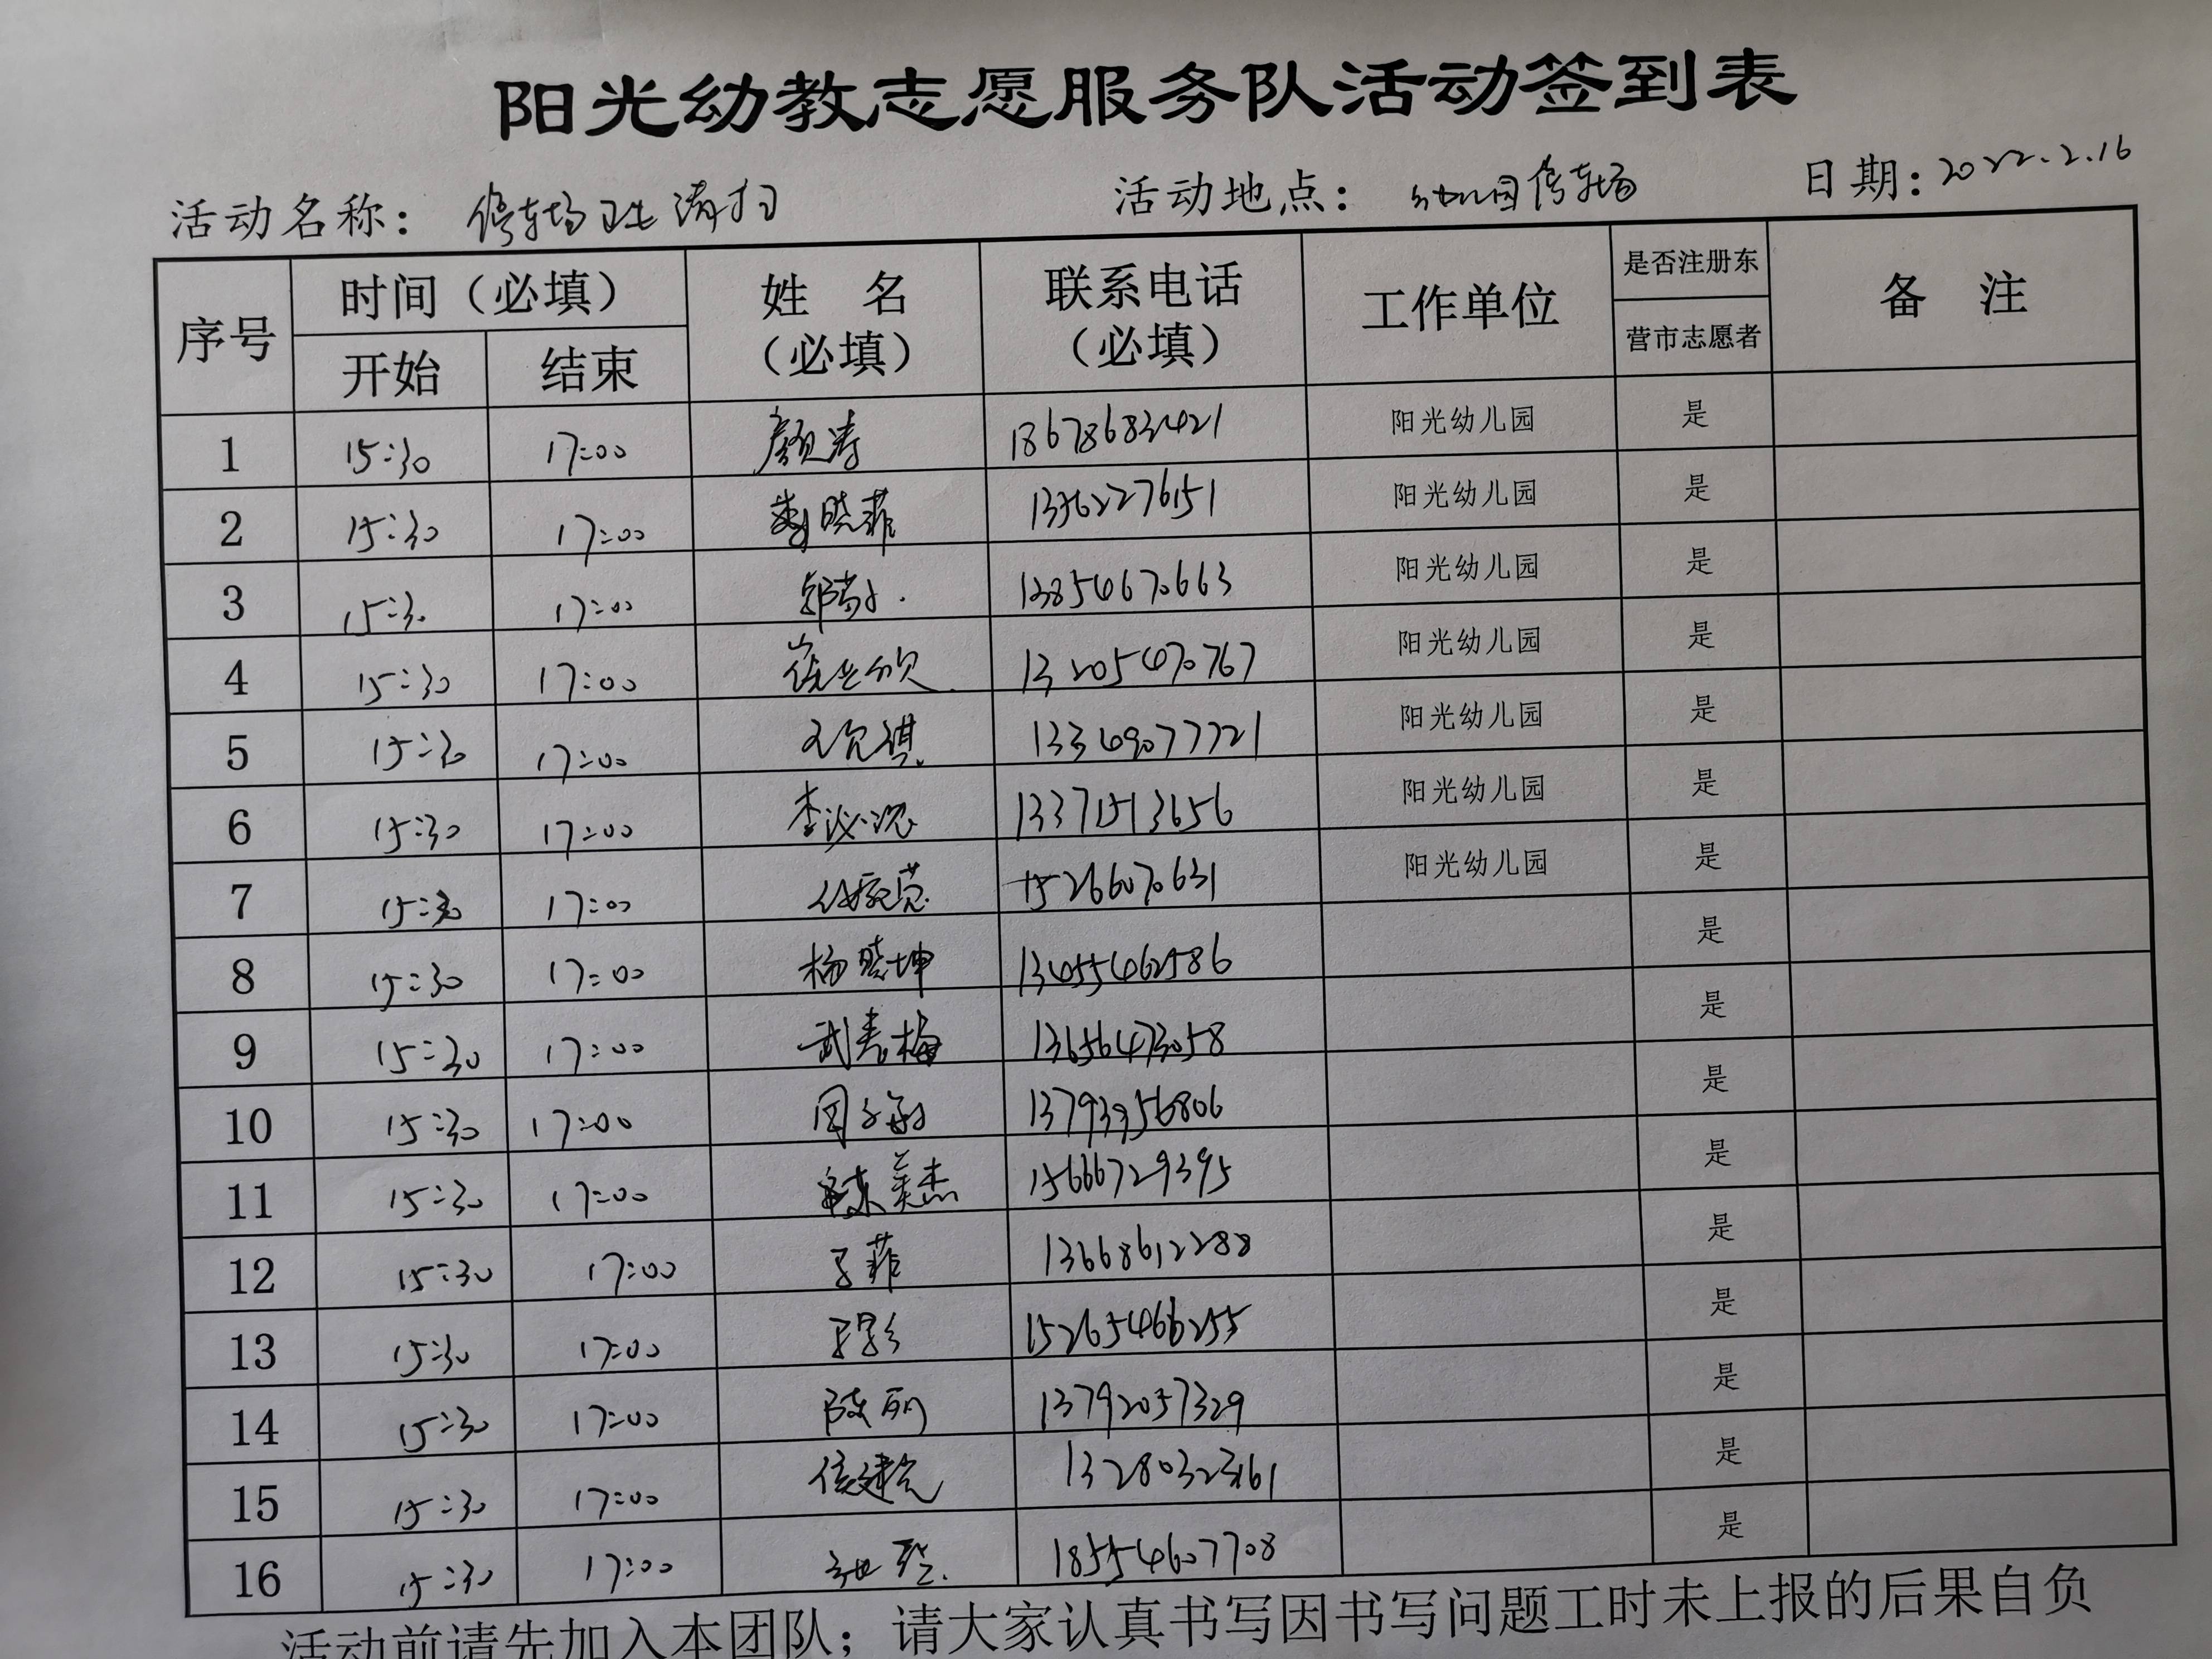 阳光幼教志愿服务队活动签到表
活动名称: 停车场卫生清扫 活动地点: 幼儿园停车场 日期: 2022.2.16
序号 时间（必填） 姓 名（必填） 联系电话（必填） 工作单位 是否注册东营市志愿者 备 注
开始 结束
1 15:30 17:00 颜涛 18678683421 阳光幼儿园 是
2 15:30 17:00 晓菲 阳光幼儿园 是
3 15:30 17:00 13854670663 阳光幼儿园 是
4 15:30 17:00 13205470767 阳光幼儿园 是
5 15:30 17:00 阳光幼儿园 是
6 15:30 17:00 13371513656 阳光幼儿园 是
7 15:30 17:00 15266070631 阳光幼儿园 是
8 15:30 17:00 杨晓坤 13455462586 是
9 15:30 17:00 武春梅 13656473058 是
10 15:30 17:00 13793956806 是
11 15:30 17:00 美杰 15666729395 是
12 15:30 17:00 菲 13668612288 是
13 15:30 17:00 15265466255 是
14 15:30 17:00 陈丽 13792057329 是
15 15:30 17:00 是
16 15:30 17:00 18554607708 是
活动前请先加入本团队；请大家认真书写因书写问题工时未上报的后果自负